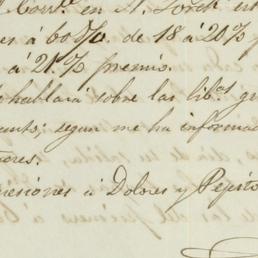 Corr.l en N. York est
es á 60 d/v. de 18 á 20% p
á 21% premio.
hablará sobre las lib.s g
unto; segun me ha informad
eres.
resiones á Dolores y Pepito